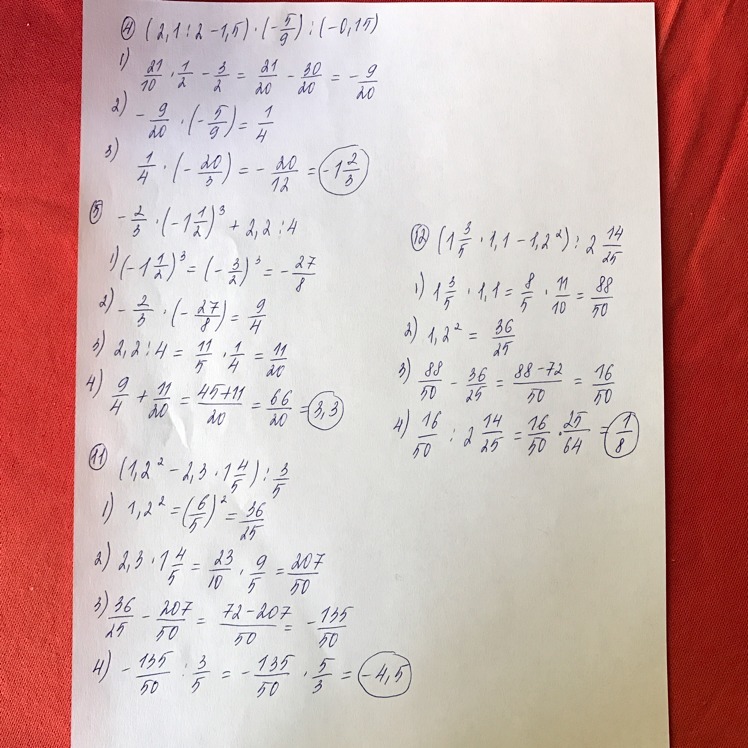 ④ (2,1:2-1,5)·(-5/9):(-0,15)
1) 21/10 · 1/2 - 3/2 = 21/20 - 30/20 = -9/20
2) -9/20 · (-5/9) = 1/4
3) 1/4 · (-20/3) = -20/12 = -1 2/3
⑤ -2/3 · (-1 1/2)³ + 2,2:4
1) (-1 1/2)³ = (-3/2)³ = -27/8
2) -2/3 · (-27/8) = 9/4
3) 2,2:4 = 11/5 · 1/4 = 11/20
4) 9/4 + 11/20 = 45+11/20 = 66/20 = 3,3
⑪ (1,2² - 2,3 · 1 4/5) : 3/5
1) 1,2² = (6/5)² = 36/25
2) 2,3 · 1 4/5 = 23/10 · 9/5 = 207/50
3) 36/25 - 207/50 = 72-207/50 = -135/50
4) -135/50 : 3/5 = -135/50 · 5/3 = -4,5
⑫ (1 3/5 · 1,1 - 1,2²) : 2 14/25
1) 1 3/5 · 1,1 = 8/5 · 11/10 = 88/50
2) 1,2² = 36/25
3) 88/50 - 36/25 = 88-72/50 = 16/50
4) 16/50 : 2 14/25 = 16/50 · 25/64 = 1/8